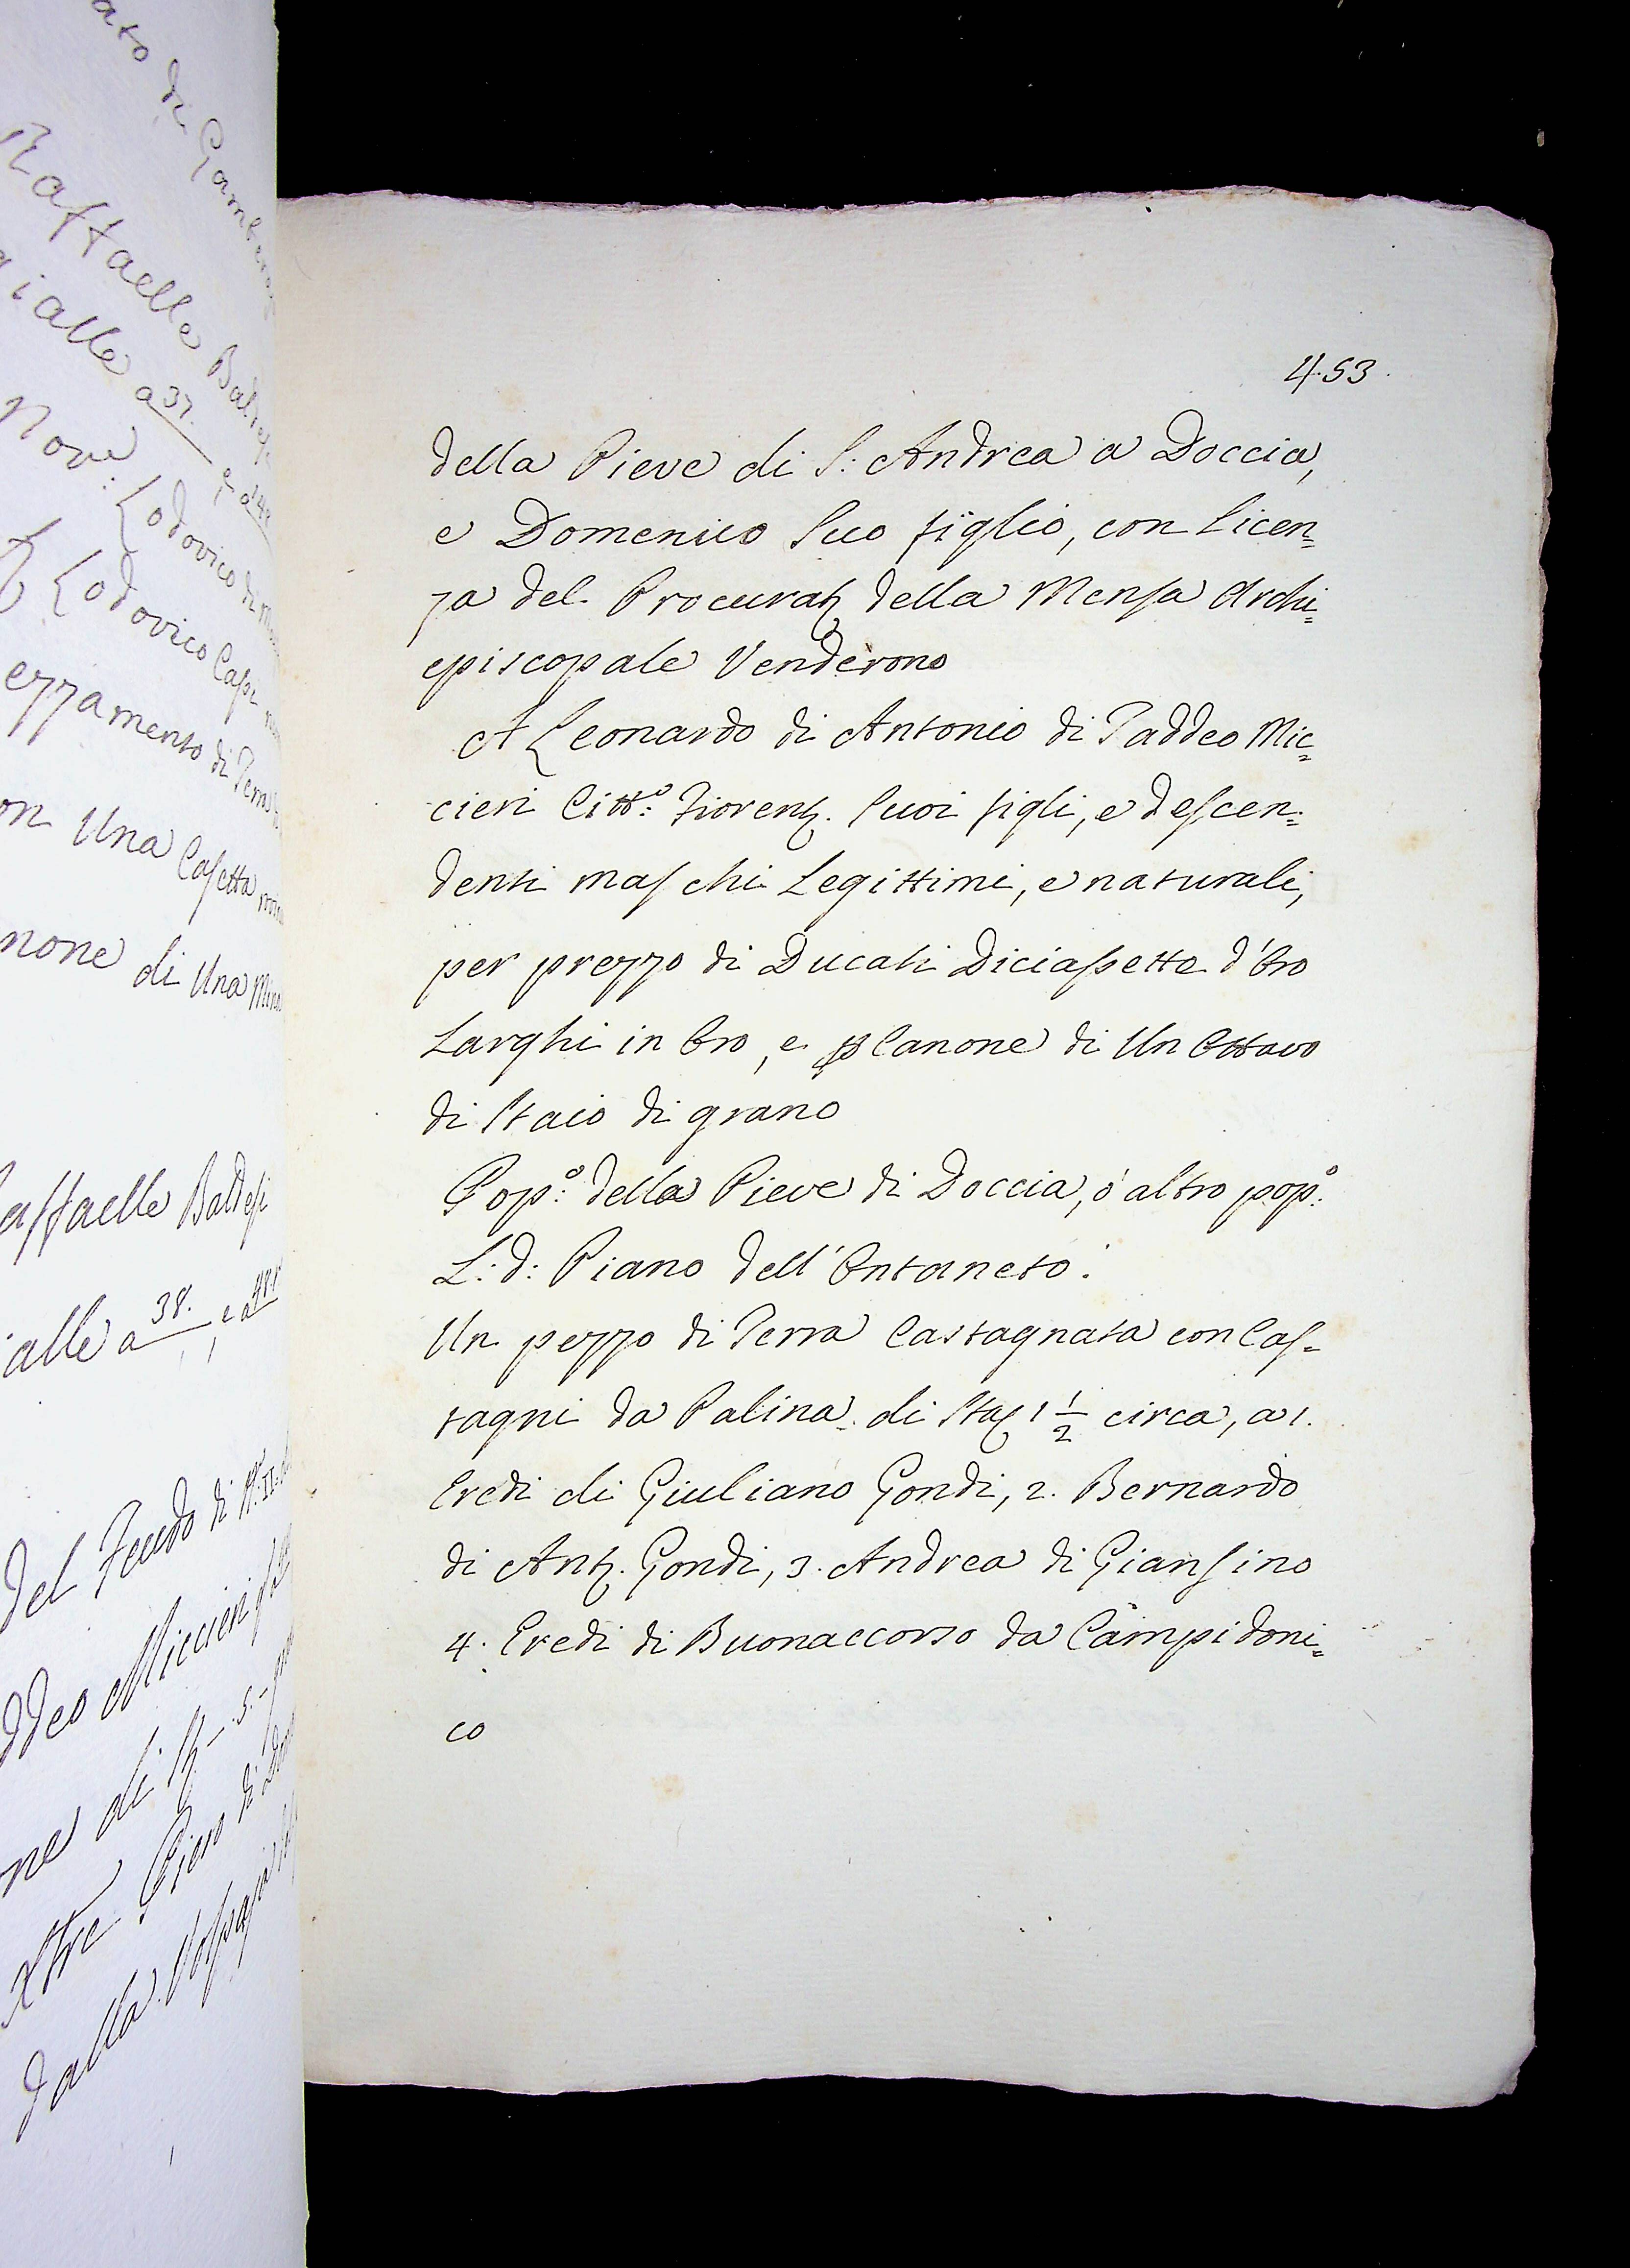 ato di Gamber
Raffaelle Baldesi
ialle a 37. e a
Nove: Lodovico di
Lodovico Capi
ezzamento di Terra
on Una Casetta
none di Una Mina
affaelle Baldesi
ialle a 38. e a
Del Feudo di
ddeo Miccieri
ne di
Piero di
dalla
4.53.
della Pieve di S: Andrea a Doccia,
e Domenico Suo figlio, con licen=
za del Procurat della Mensa Archi=
episcopale Venderono
A Leonardo di Antonio di Taddeo Mic=
cieri Citt:° Fiorent. Suoi figli, e descen=
denti maschi Legittimi, e naturali,
per prezzo di Ducati Diciassette d'Oro
Larghi in Oro, e p Canone di Un Ottavo
di Staio di grano
Pop:° della Pieve di Doccia, ò altro pop:°
L: d: Piano dell'Ontaneto.
Un pezzo di Terra Castagnata con Cas=
tagni da Palina di Sta 1 1/2 circa, a 1.
Eredi di Giuliano Gondi, 2. Bernardo
di Ant. Gondi, 3. Andrea di Giansino
4. Eredi di Buonaccorso da Campidoni=
co